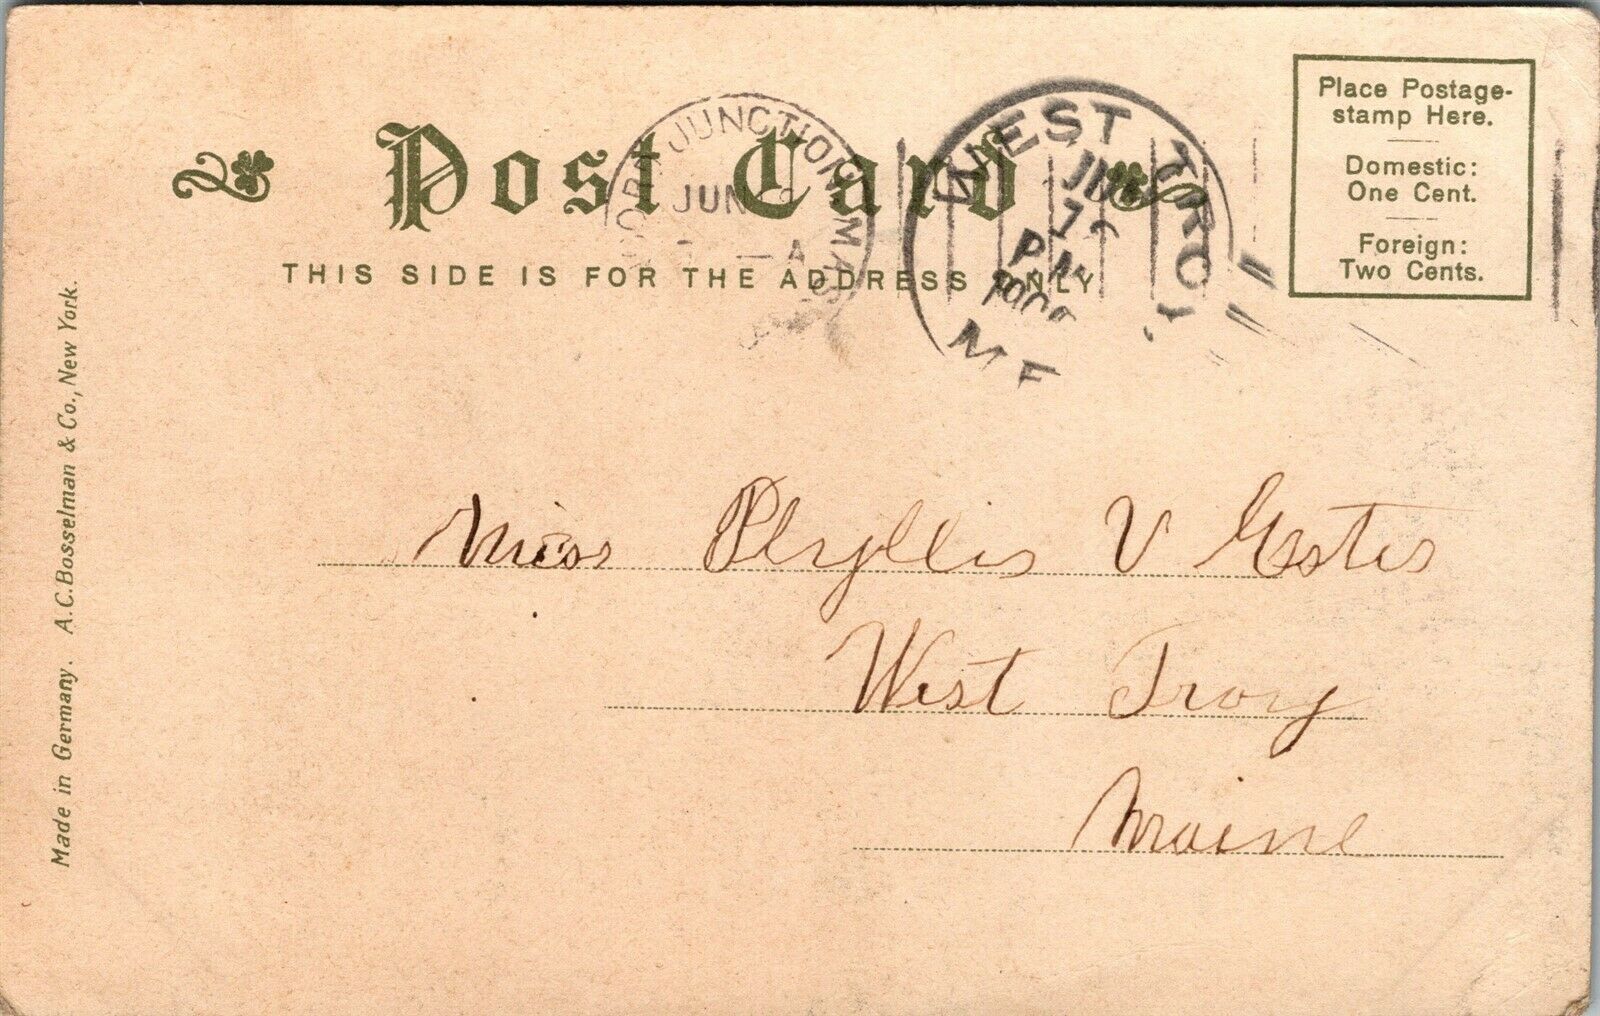 Post Card
THIS SIDE IS FOR THE ADDRESS ONLY
JUNCTION MASS
JUN
A
WEST TROY
PM
ME
Place Postage-
stamp Here.
Domestic:
One Cent.
Foreign:
Two Cents.
Miss Phyllis V Estes
West Troy
Maine
Made in Germany. A.C.Bosselman & Co., New York.